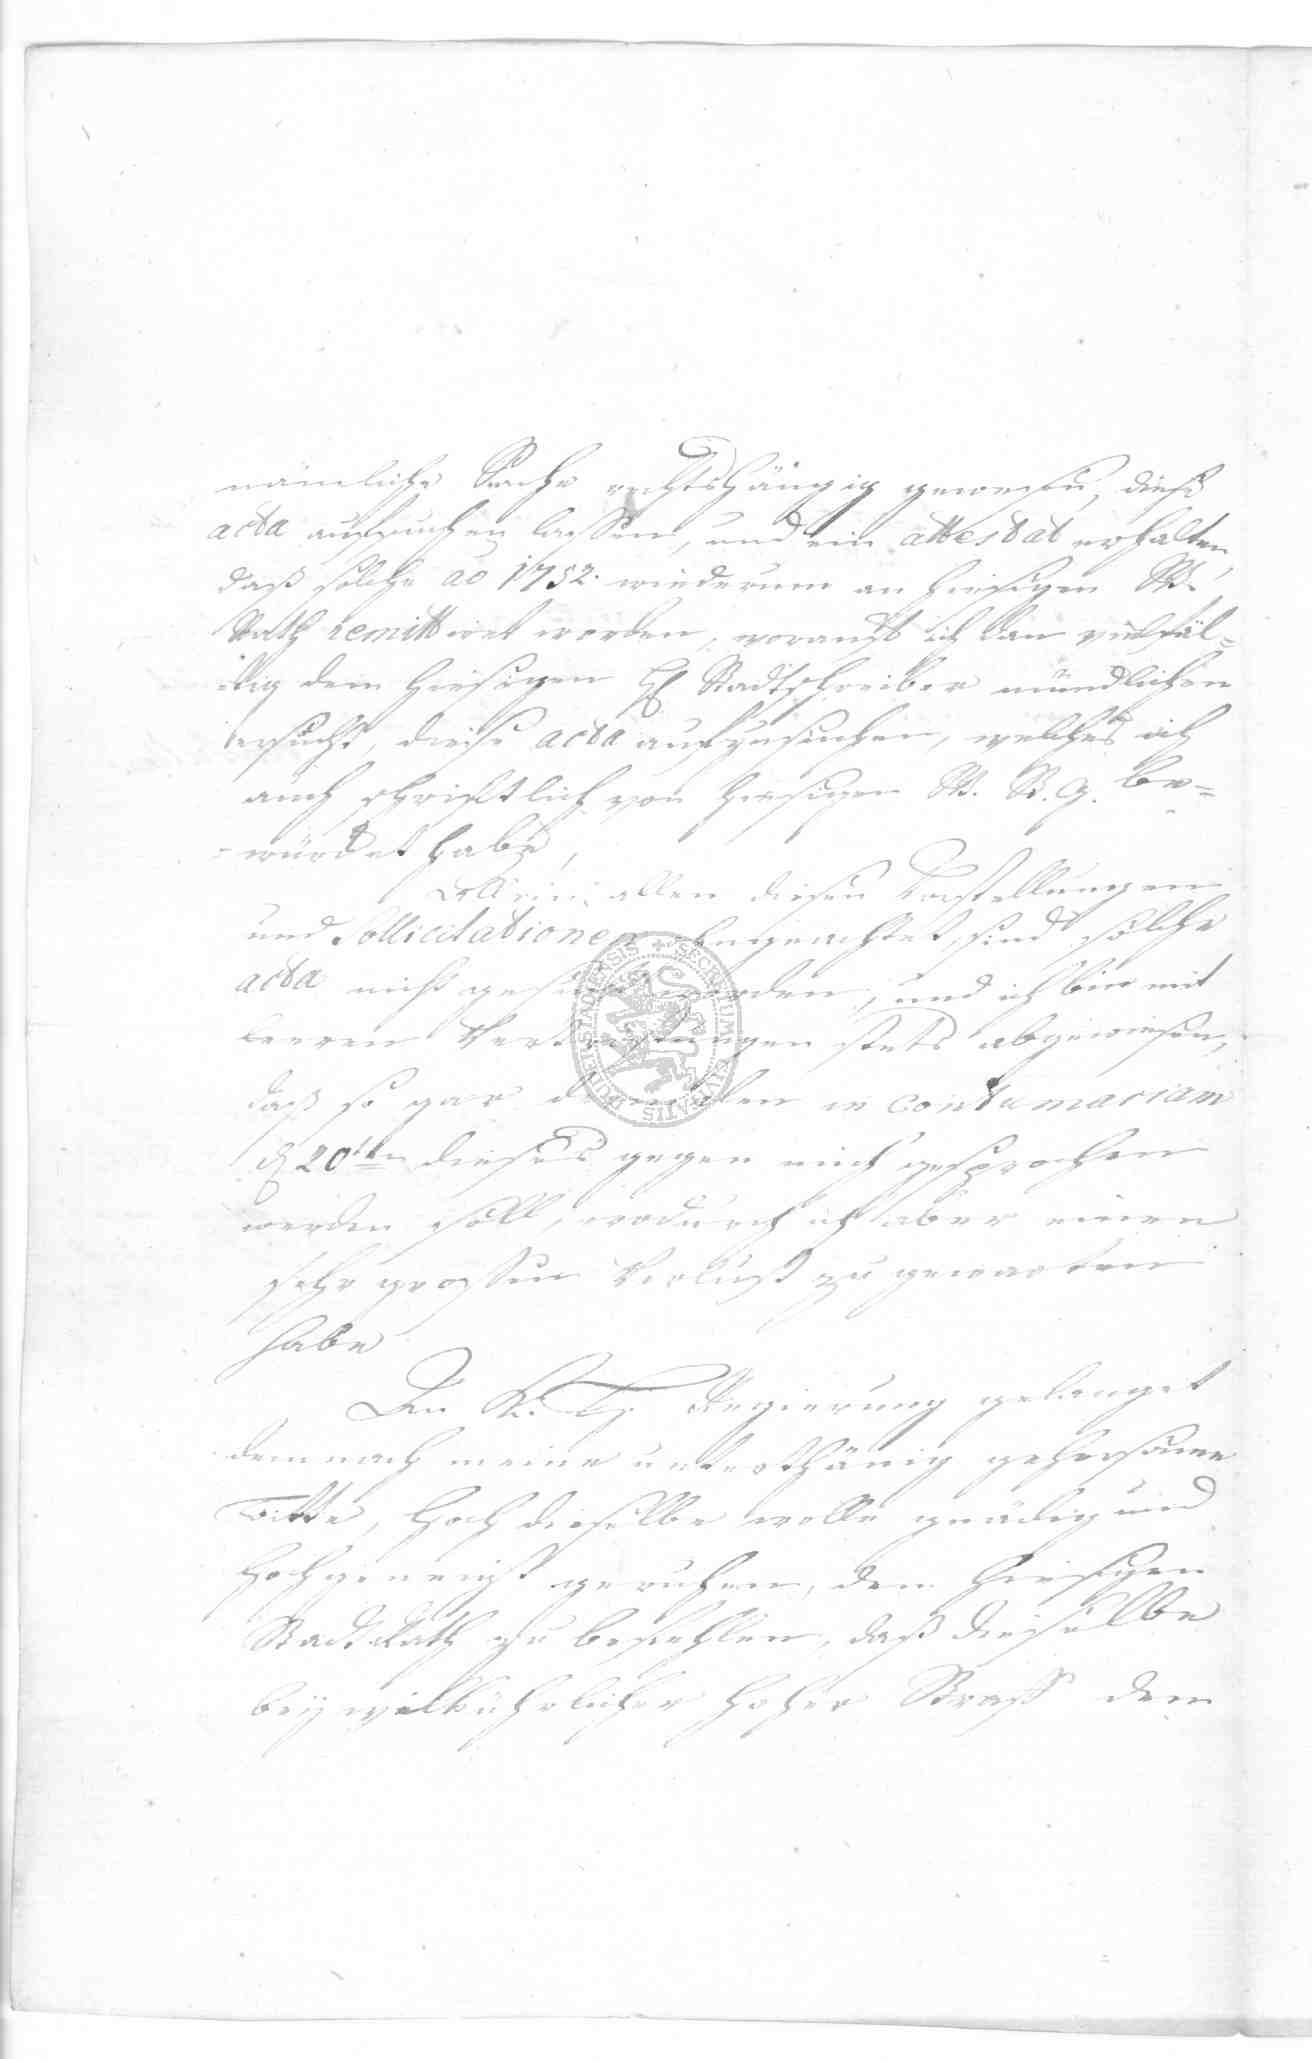 nämliche Sache rechtshängig gewesen, diese
acta aufsuchen lassen, und ein attestat erhalten,
daß solche ao 1752. wiederum an hiesigen St.
Rath remittiret worden, worauf ich dan vielfäl-
tig dem hiesigen H Stadtschreiber mündlichen
ersucht, diese acta aufzusuchen, welches ich
auch schriftlich von hiesigen St. R. g. be-
würdet habe,
Allein allen diesen Vorstellungen
und Sollicitationen ohngeachtet, sind solche
acta nicht gesucht worden, und ich bin mit
leeren Vertröstungen stets abgewiesen,
daß so gar in contumaciam
d 20ten dieses gegen mich gesprochen
werden soll, wodurch ich aber einen
sehr grossen Verlust zu gewarten
habe
An K. Regierung gelanget
demnach meine unterthänig gehorsame
Bitte, Hoch dieselbe wolle gnädig und
hochgeneigt geruhen, dem hiesigen
Stadt Rath zu befehlen, daß dieselbe
bey willkührlicher hoher Straff dem
SECRETUM CIVITATIS RUDELSTADIENSIS